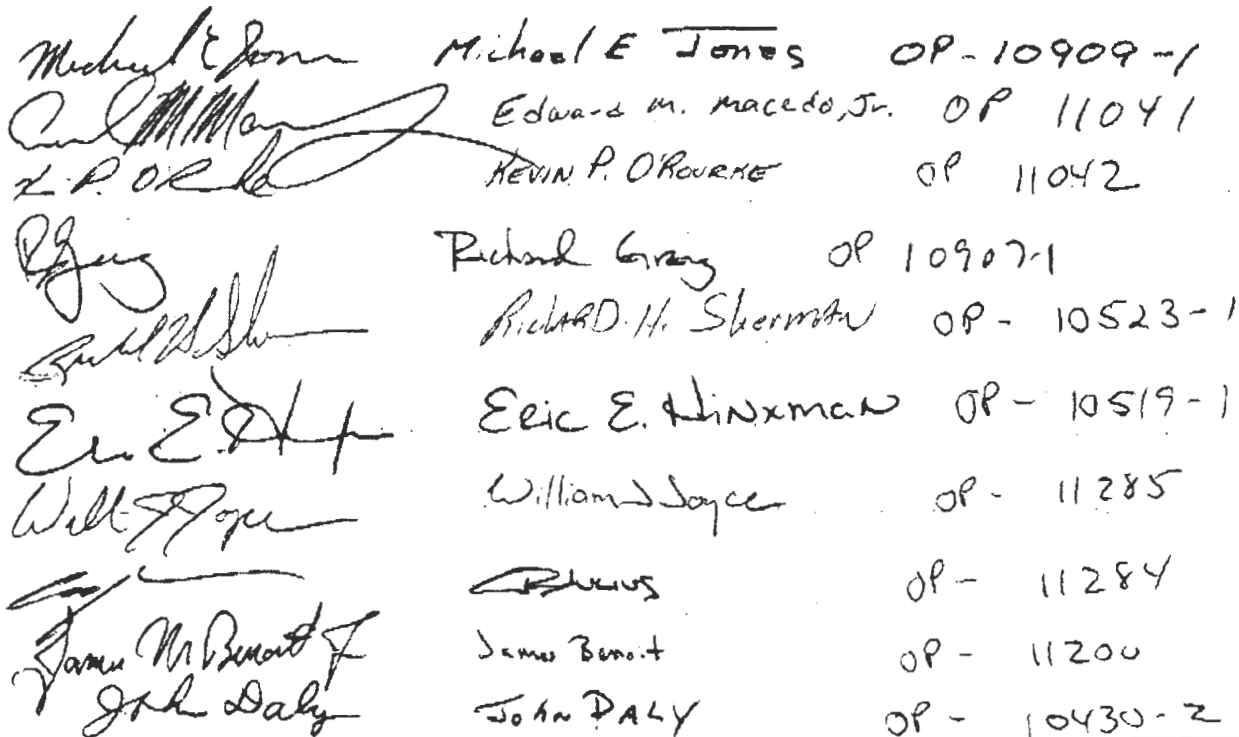 Michael E Jones Michael E Jones OP-10909-1
Edward m. macedo, Jr. OP 11041
K. P. O'Rourke KEVIN P. O'ROURKE OP 11042
Richard OP 10907-1
RichARD. H. ShermAN OP - 10523-1
Eric E. Eric E. HiNxmaN OP - 10519-1
William J Joyce OP - 11285
OP - 11284
James M Benoit Jr James Benoit OP - 11200
John Daly JohN DALY OP - 10430-2